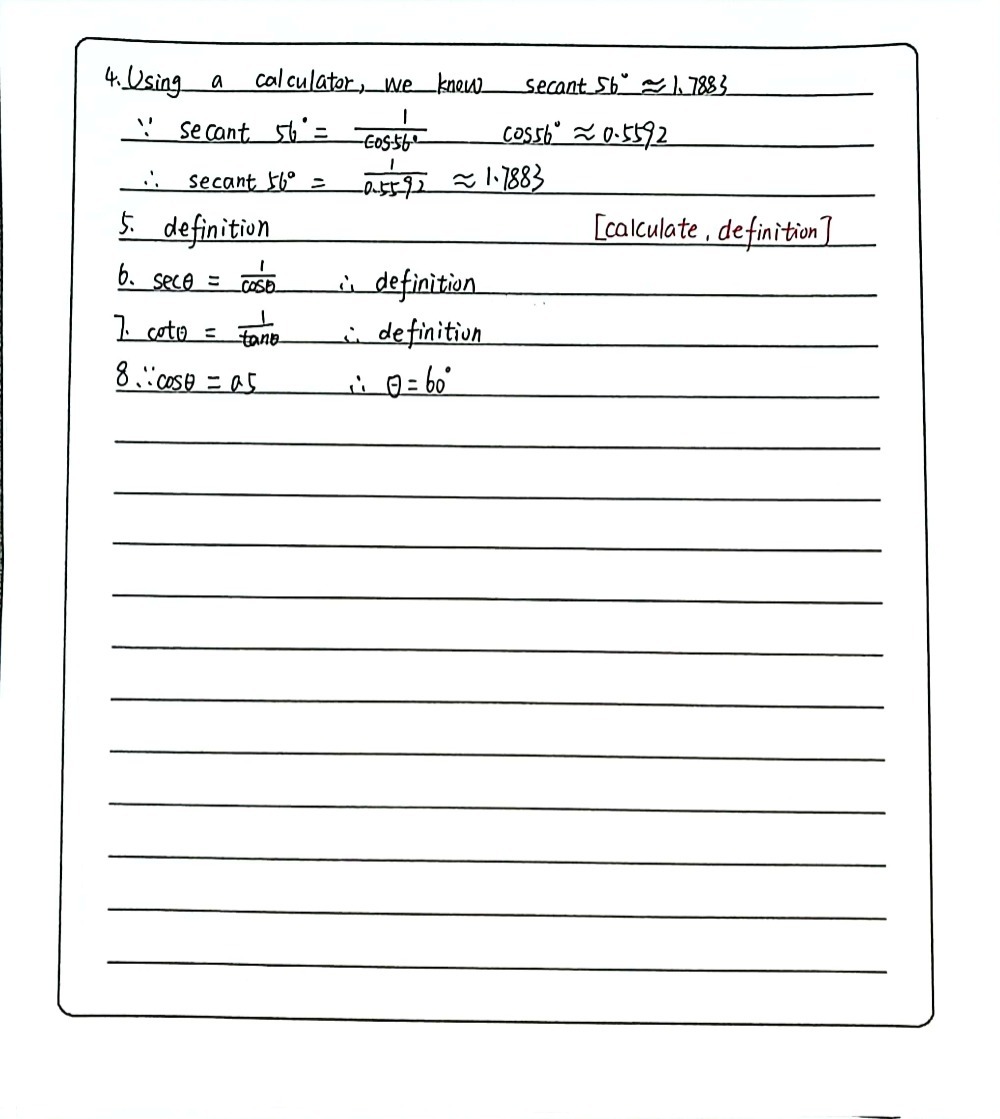 4. Using a calculator, we know secant 56° ≈ 1.7883
∵ secant 56° = 1/cos56° cos56° ≈ 0.5592
∴ secant 56° = 1/0.5592 ≈ 1.7883
5. definition [calculate, definition]
6. secθ = 1/cosθ ∴ definition
7. cotθ = 1/tanθ ∴ definition
8. ∵ cosθ = 0.5 ∴ θ = 60°